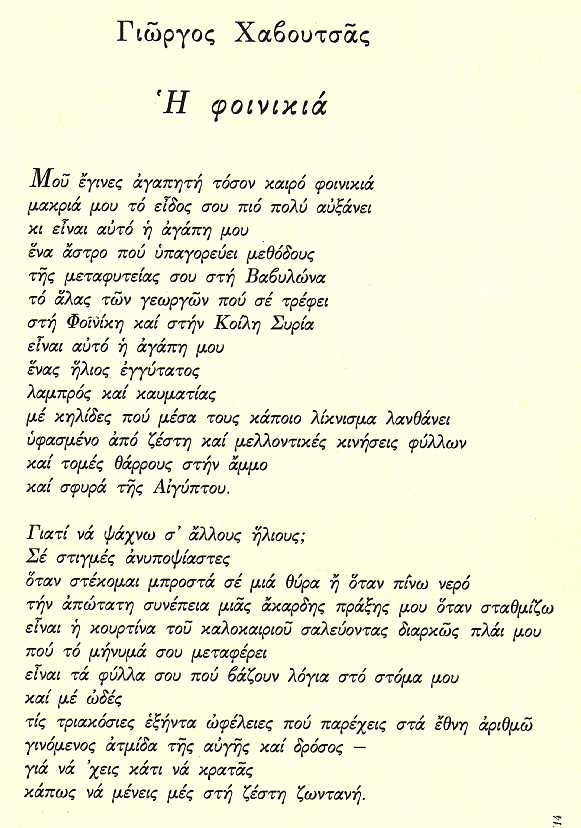 Γιῶργος Χαβουτσᾶς
Ἡ φοινικιά
Μοῦ ἔγινες ἀγαπητή τόσον καιρό φοινικιά
μακριά μου τό εἶδος σου πιό πολύ αὐξάνει
κι εἶναι αὐτό ἡ ἀγάπη μου
ἕνα ἄστρο πού ὑπαγορεύει μεθόδους
τῆς μεταφυτείας σου στή Βαβυλώνα
τό ἅλας τῶν γεωργῶν πού σέ τρέφει
στή Φοινίκη καί στήν Κοίλη Συρία
εἶναι αὐτό ἡ ἀγάπη μου
ἕνας ἥλιος ἐγγύτατος
λαμπρός καί καυματίας
μέ κηλίδες πού μέσα τους κάποιο λίκνισμα λανθάνει
ὑφασμένο ἀπό ζέστη καί μελλοντικές κινήσεις φύλλων
καί τομές θάρρους στήν ἄμμο
καί σφυρά τῆς Αἰγύπτου.
Γιατί νά ψάχνω σ' ἄλλους ἥλιους;
Σέ στιγμές ἀνυποψίαστες
ὅταν στέκομαι μπροστά σέ μιά θύρα ἤ ὅταν πίνω νερό
τήν ἀπώτατη συνέπεια μιᾶς ἄκαρδης πράξης μου ὅταν σταθμίζω
εἶναι ἡ κουρτίνα τοῦ καλοκαιριοῦ σαλεύοντας διαρκῶς πλάι μου
πού τό μήνυμά σου μεταφέρει
εἶναι τά φύλλα σου πού βάζουν λόγια στό στόμα μου
καί μέ ὠδές
τίς τριακόσιες ἑξήντα ὠφέλειες πού παρέχεις στά ἔθνη ἀριθμῶ
γινόμενος ἀτμίδα τῆς αὐγῆς καί δρόσος —
γιά νά 'χεις κάτι νά κρατᾶς
κάπως νά μένεις μές στή ζέστη ζωντανή.
14